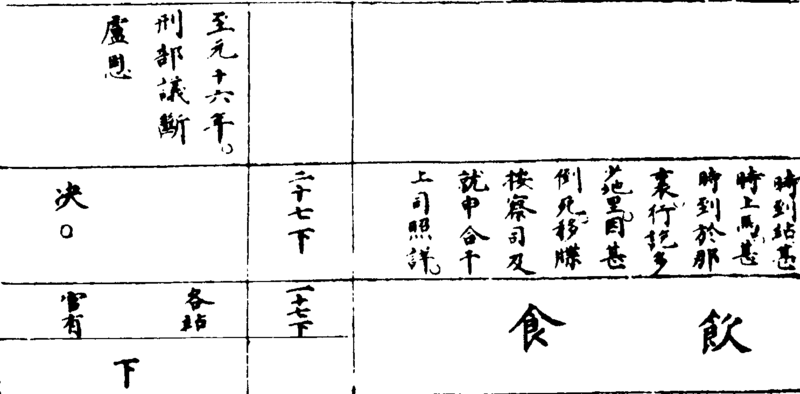 時到站甚
時上馬甚
時到於那
裏行說多
少地里因甚
倒死移牒
按察司及
就申合干
上司照詳
飲食
二十七下
一十七下
至元十六年
刑部議斷
盧思
决○
各站
官有
下